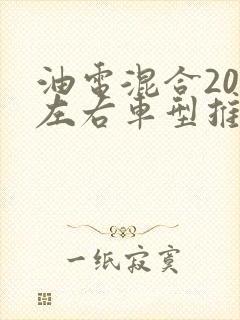 油电混合20
左右车型推
一纸寂寞